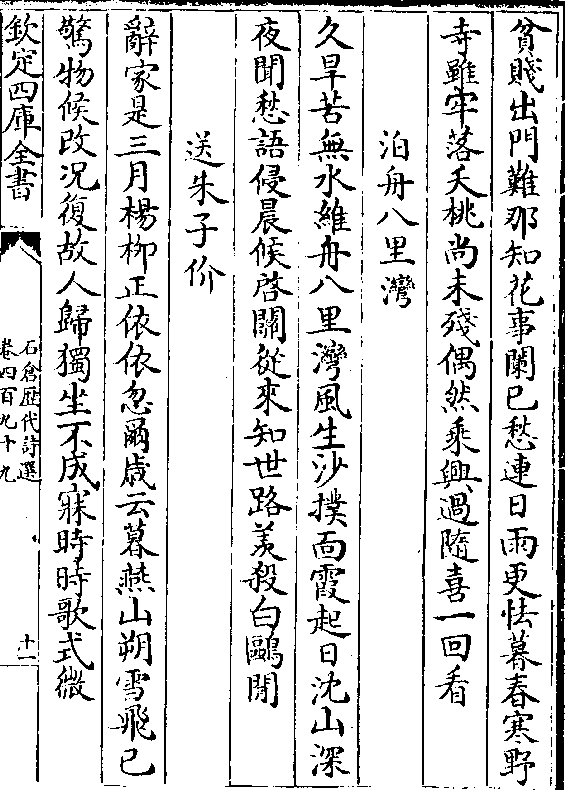 貧賤出門難那知花事闌已愁連日雨更怯暮春寒野
寺雖牢落夭桃尚未殘偶然乘興過隨喜一回看
泊舟八里灣
久旱苦無水維舟八里灣風生沙撲面霞起日沈山深
夜聞愁語侵晨候啓關從來知世路羡殺白鷗閒
送朱子价
辭家是三月楊柳正依依忽爾歲云暮燕山朔雪飛已
驚物候改况復故人歸獨坐不成寐時時歌式微
欽定四庫全書
石倉歴代詩選
卷四百九十九
十一